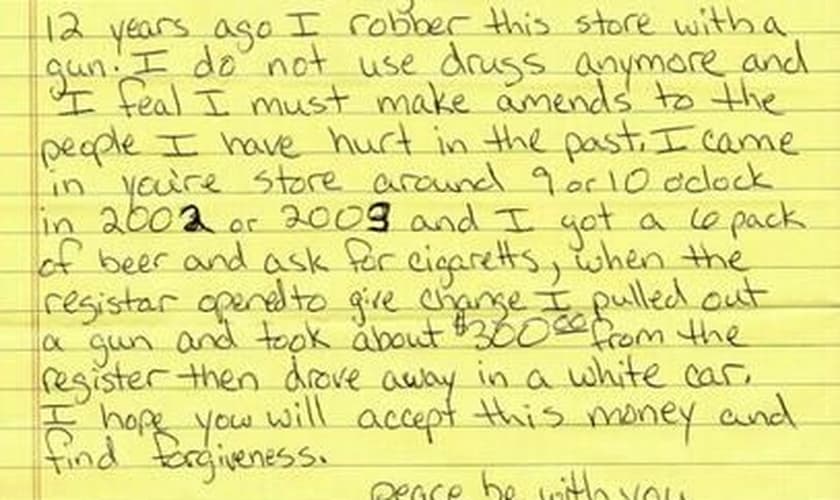 12 years ago I robber this store with a
gun. I do not use drugs anymore and
I feal I must make amends to the
people I have hurt in the past. I came
in you're store around 9 or 10 oclock
in 2002 or 2003 and I got a 6 pack
of beer and ask for cigaretts, when the
registar opened to give change I pulled out
a gun and took about $300.00 from the
register then drove away in a white car.
I hope you will accept this money and
find forgiveness.
peace be with you